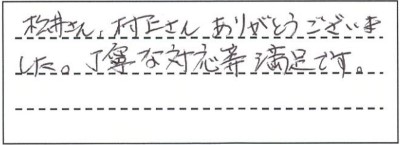 松井さん、村上さん ありがとうございま
した。丁寧な対応等 満足です。